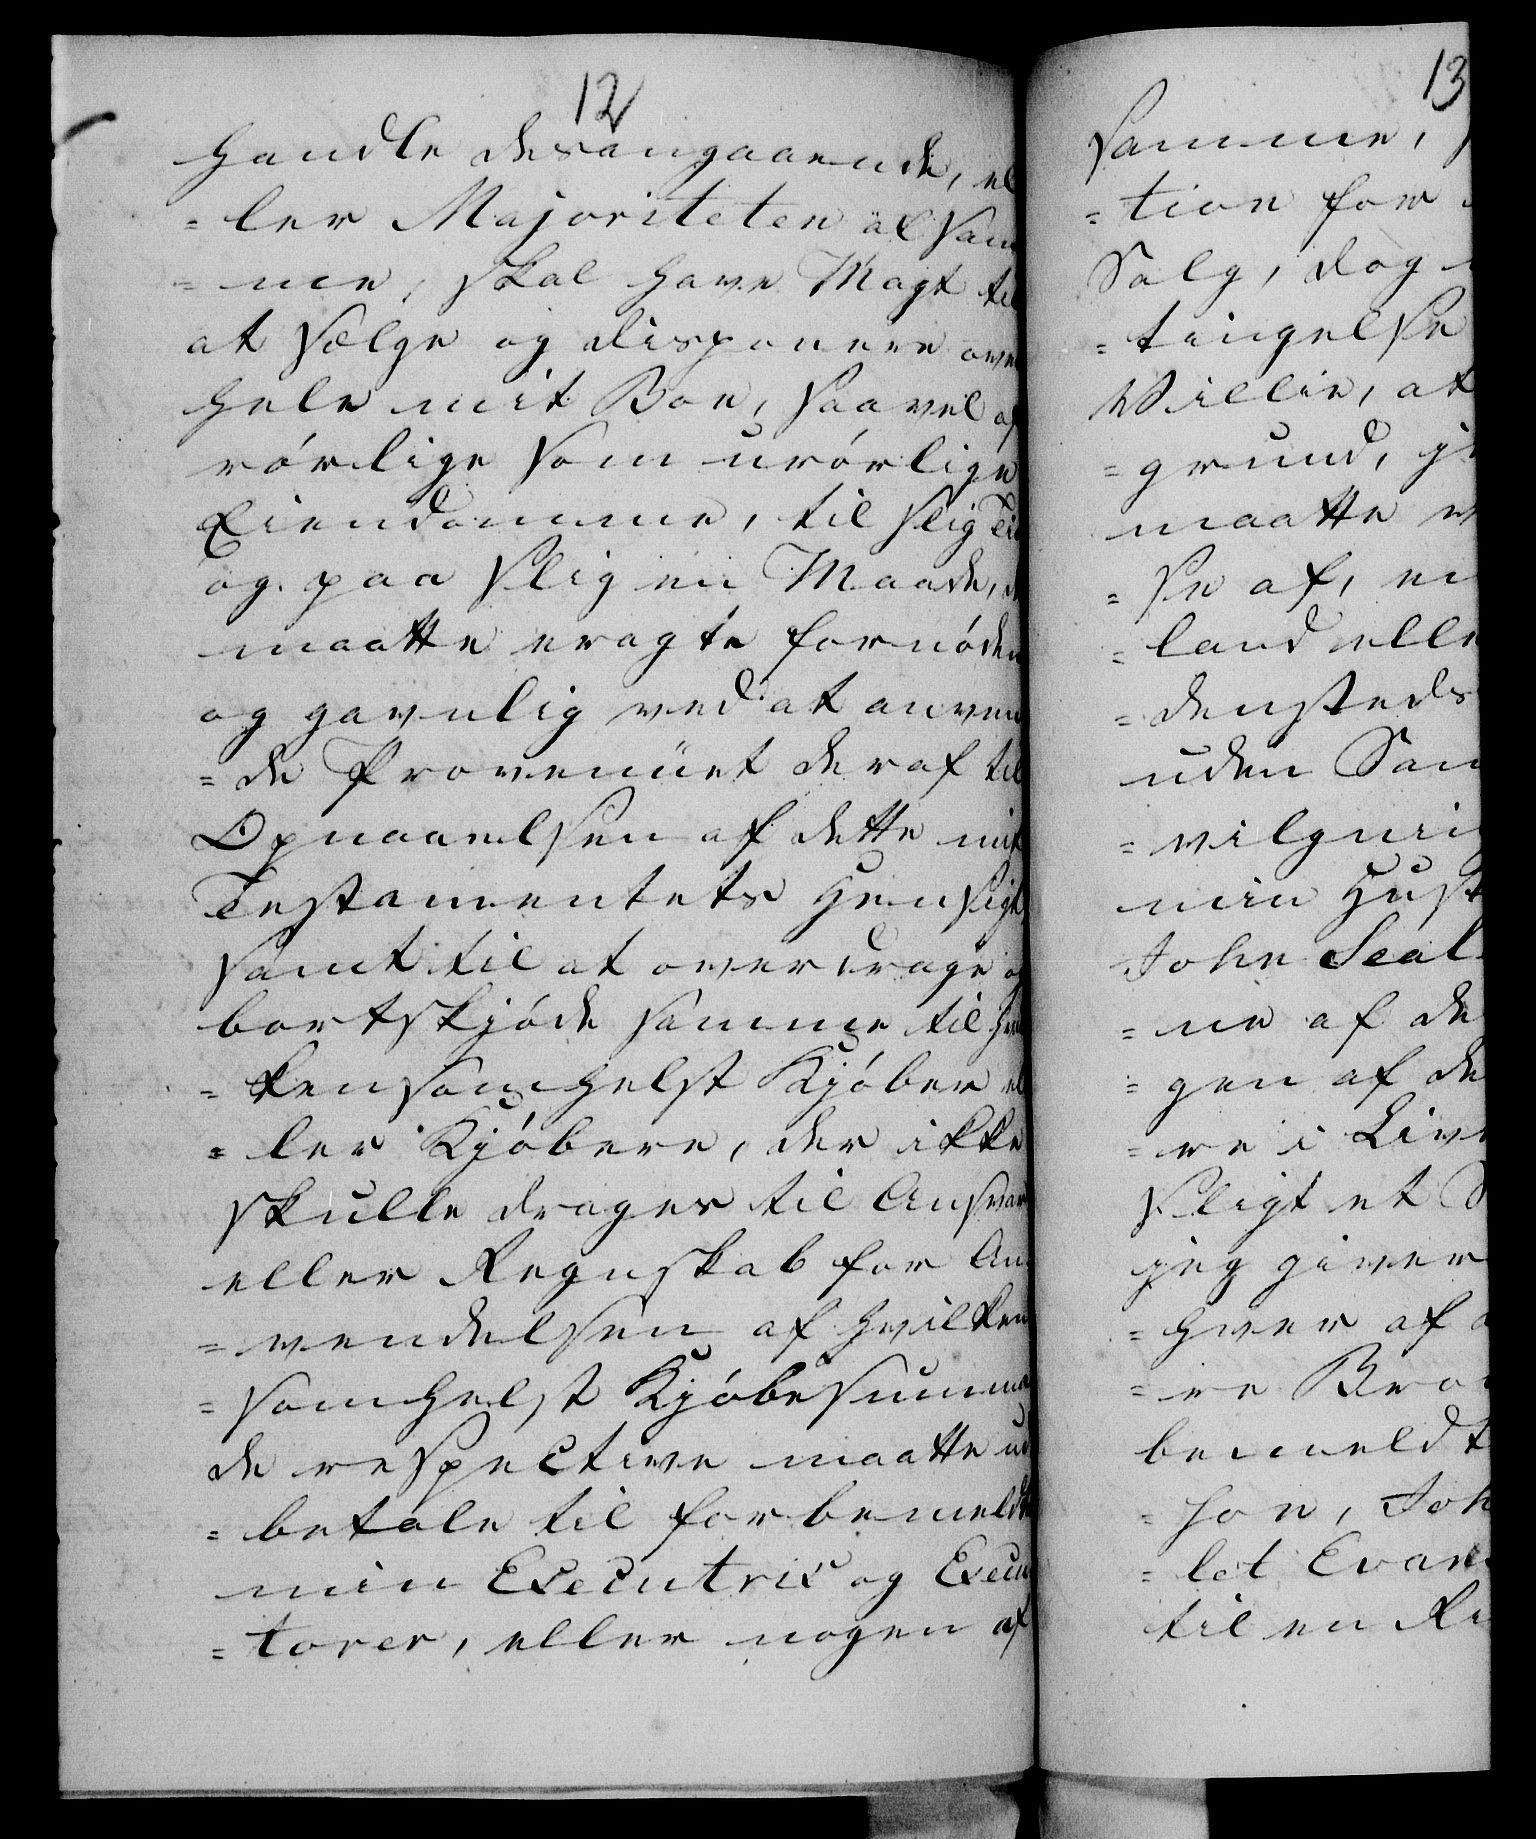 12
handle desangaaende, el
= ler Majoriteten af sam
= me, skal have Magt til
at sælge og disponere over
hele mit Boe, saavel af
rørlige som urørlige
Eiendomme, til slig Tid
og paa slig en Maade, de
maatte eragte fornøden
og gavnlig ved at anven
= de Provenüet deraf til
Opnaaelsen af dette mit
Testamentets Hensigt,
samt til at overdrage og
bortskjøde samme til hvil
= kensomhelst Kjøber el
= ler Kjøbere, der ikke
skulle drages til Ansvar
eller Regnskab for An
= vendelsen af hvilken
= somhelst Kjøbesumma
de respective maatte ud
= betale til forbemeldte
min Executrix og Execu
= torer, eller nogen af
13
samme,
= tion for
Salg, dog
= tingelse
Willie, at
= grund,
maatte
= se af, en
= land elle
= densteds
uden Sam
= vilgni
min Hust
John Seal
= ne af de
= gen af de
= re i Live
sligt et
jeg giver
= hver af
= re Bro
bemeldt
= son, Joh
= let Evan
til en